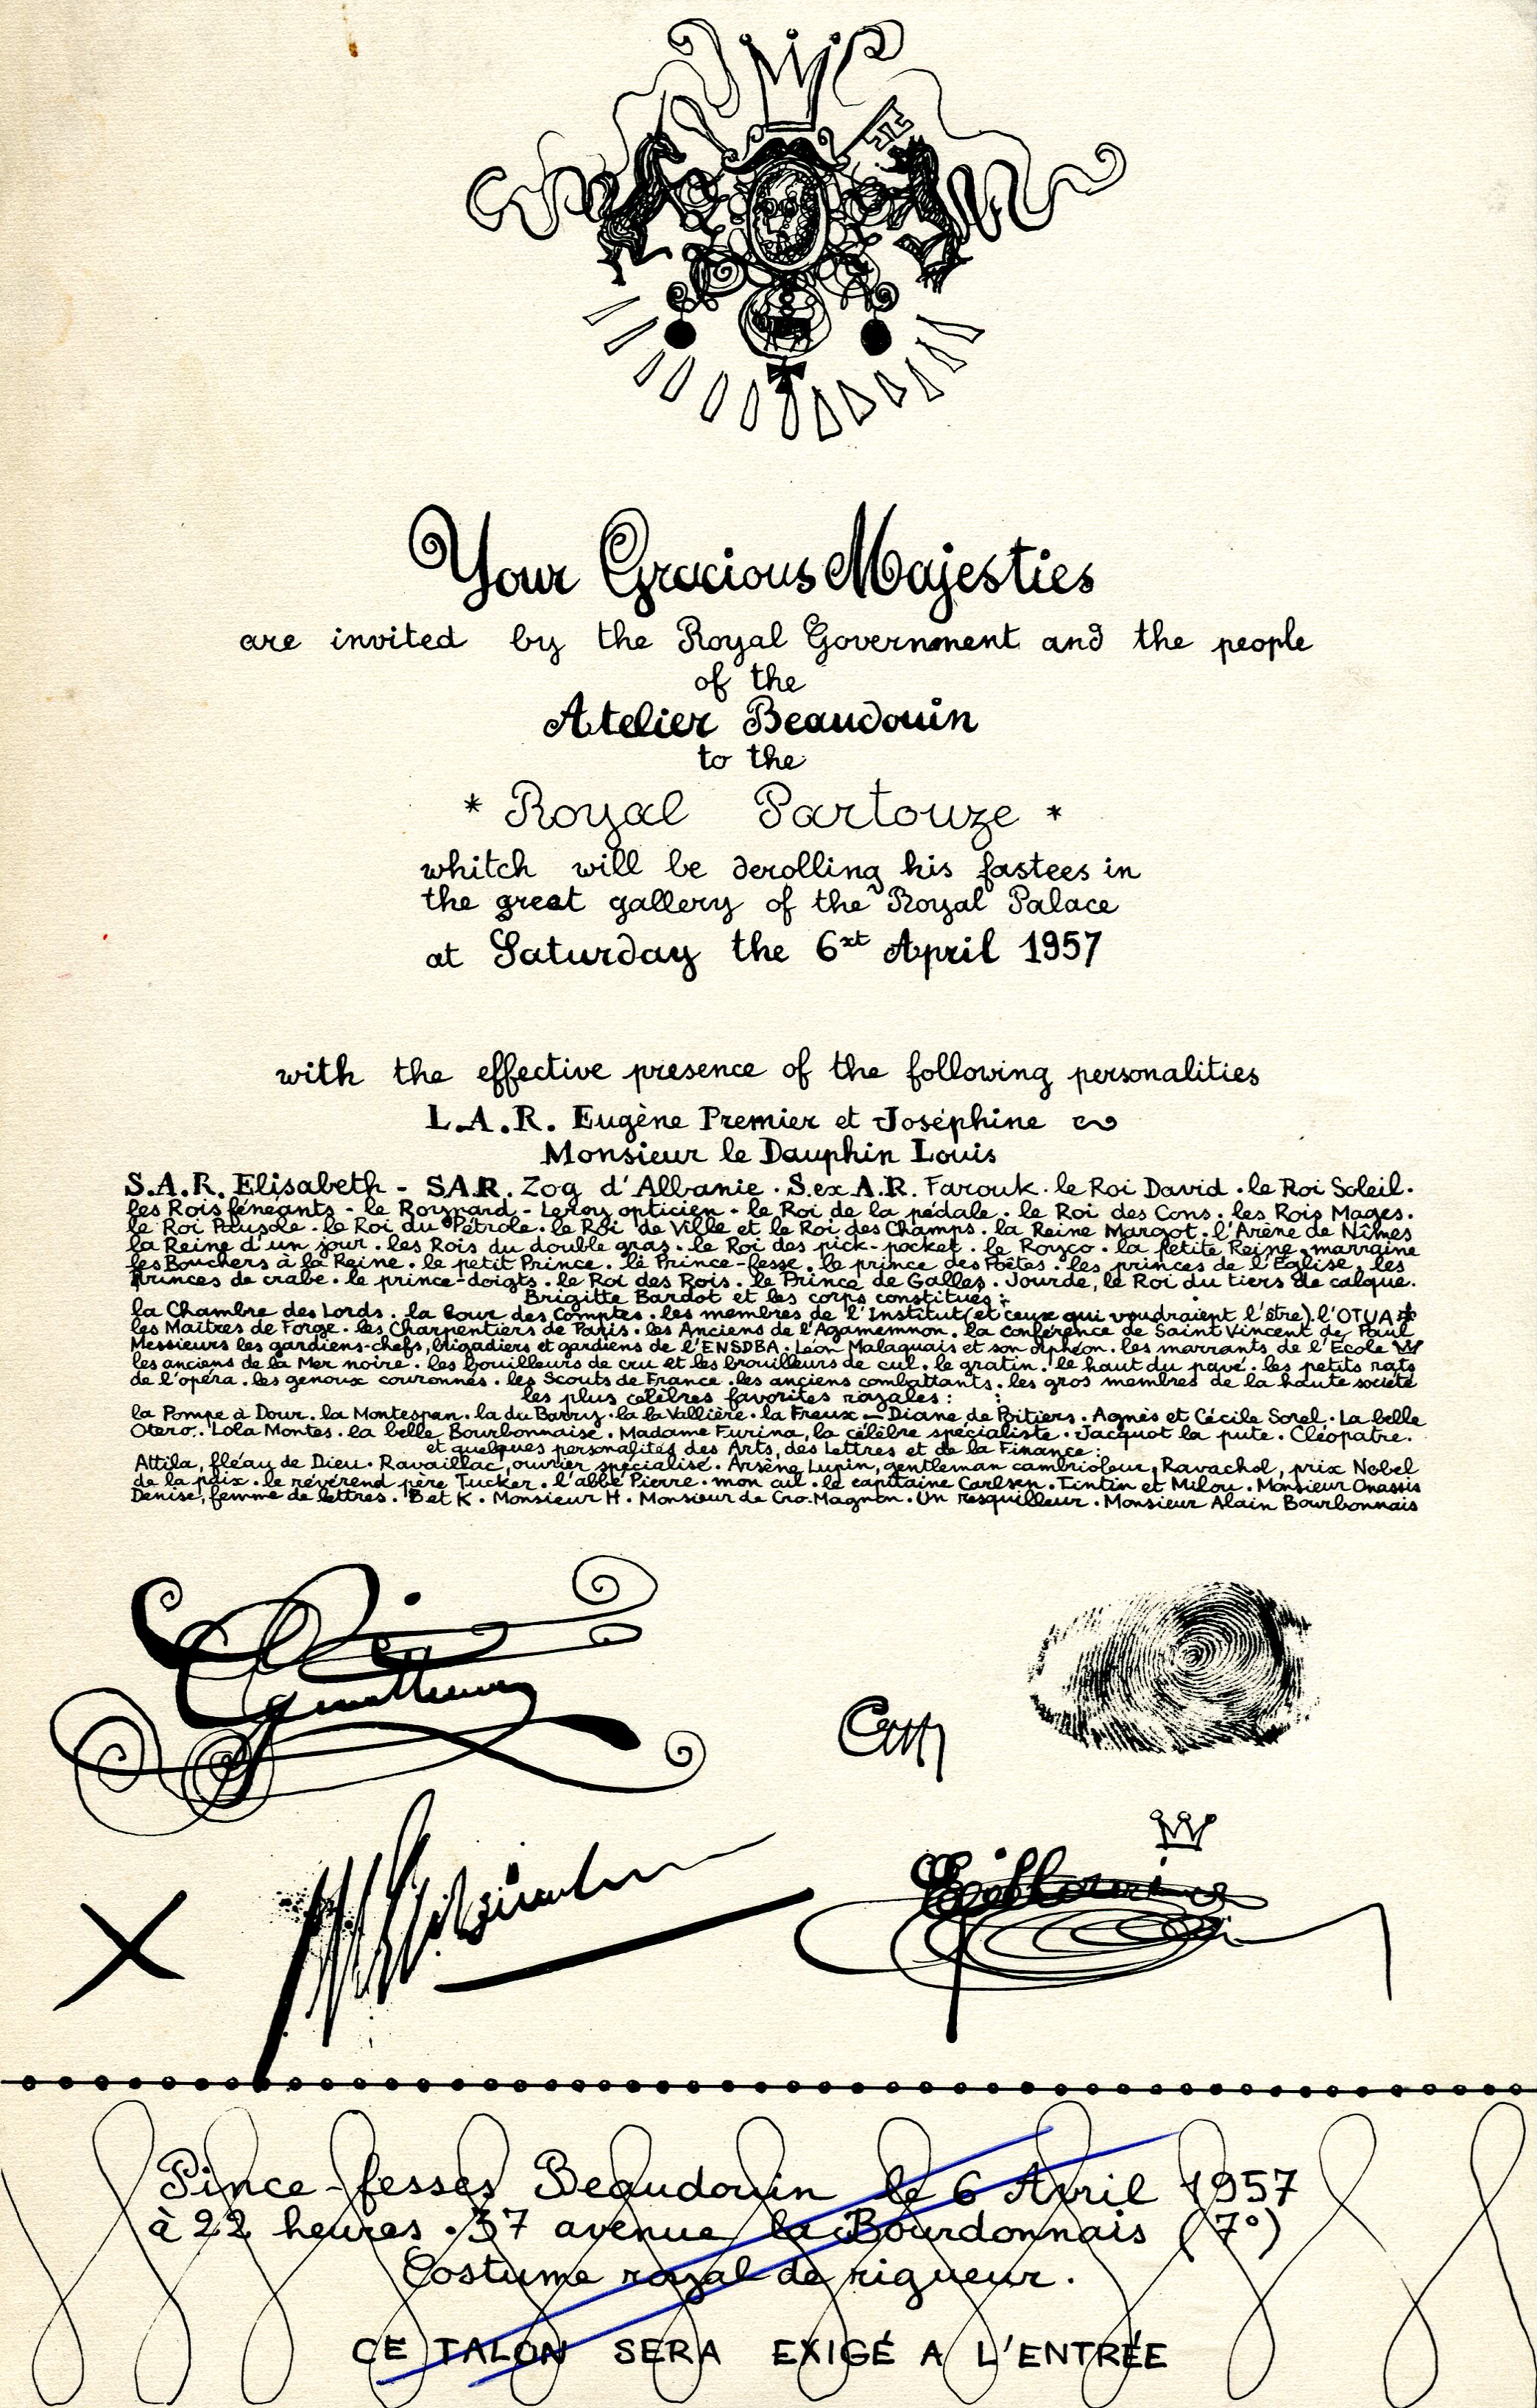 Your Gracious Majesties
are invited by the Royal Government and the people
of the
Atelier Beaudouin
to the
* Royal Partouze *
whitch will be derolling his fastees in
the great gallery of the Royal Palace
at Saturday the 6xt April 1957
with the effective presence of the following personalities
L.A.R. Eugène Premier et Joséphine
Monsieur le Dauphin Louis
S.A.R. Elisabeth - SAR. Zog d'Albanie . S.ex A.R. Farouk . le Roi David . le Roi Soleil .
les Rois fénéants - le Roynard - Leroy opticien - le Roi de la pédale . le Roi des Cons . les Rois Mages .
le Roi Pausole . le Roi du Pétrole . le Roi de Ville et le Roi des Champs . la Reine Margot . l'Arène de Nîmes
la Reine d'un jour . les Rois du double gras . le Roi des pick-pocket . le Royco . la petite Reine . marraine
les Bouchers à la Reine . le petit Prince . le Prince-fesse . le prince des Poêtes . les princes de l'Eglise . les
Princes de crabe . le prince-doigts . le Roi des Rois . le Prince de Galles . Jourde, le Roi du tiers de calque .
Brigitte Bardot et les corps constitués :
la Chambre des Lords . la Cour des Comptes . les membres de l'Institut (et ceux qui voudraient l'être) . l'OTUA
les Maîtres de Forge . les Charpentiers de Paris . les Anciens de l'Agamemnon . la conférence de Saint Vincent de Paul
Messieurs les gardiens-chefs, brigadiers et gardiens de l'ENSDBA . Léon Malaquais et son orphéon . les marrants de l'Ecole W
les anciens de la Mer noire . les bouilleurs de cru et les brouilleurs de cul . le gratin . le haut du pavé . les petits rats
de l'opéra . les genoux couronnés . les Scouts de France . les anciens combattants . les gros membres de la haute société
les plus célèbres favorites royales :
la Pompe à Dour . la Montespan . la du Barry . la la Vallière . la Freux - Diane de Poitiers . Agnès et Cécile Sorel . La belle
Otero . Lola Montes . la belle Bourbonnaise . Madame Furina, la célèbre spécialiste . Jacquot la pute . Cléopatre .
et quelques personalités des Arts, des Lettres et de la Finance :
Attila, fléau de Dieu . Ravaillac, ouvrier spécialisé . Arsène Lupin, gentleman cambrioleur, Ravachol, prix Nobel
de la paix . le révérend père Tucker . l'abbé Pierre . mon cul . le capitaine Carlsen . Tintin et Milou . Monsieur Onassis
Denise, femme de lettres . B et K . Monsieur H . Monsieur de Cro-Magnon . Un resquilleur . Monsieur Alain Bourbonnais
X
Pince-fesses Beaudouin le 6 Avril 1957
à 22 heures . 37 avenue la Bourdonnais (7°)
Costume royal de rigueur .
CE TALON SERA EXIGÉ A L'ENTRÉE